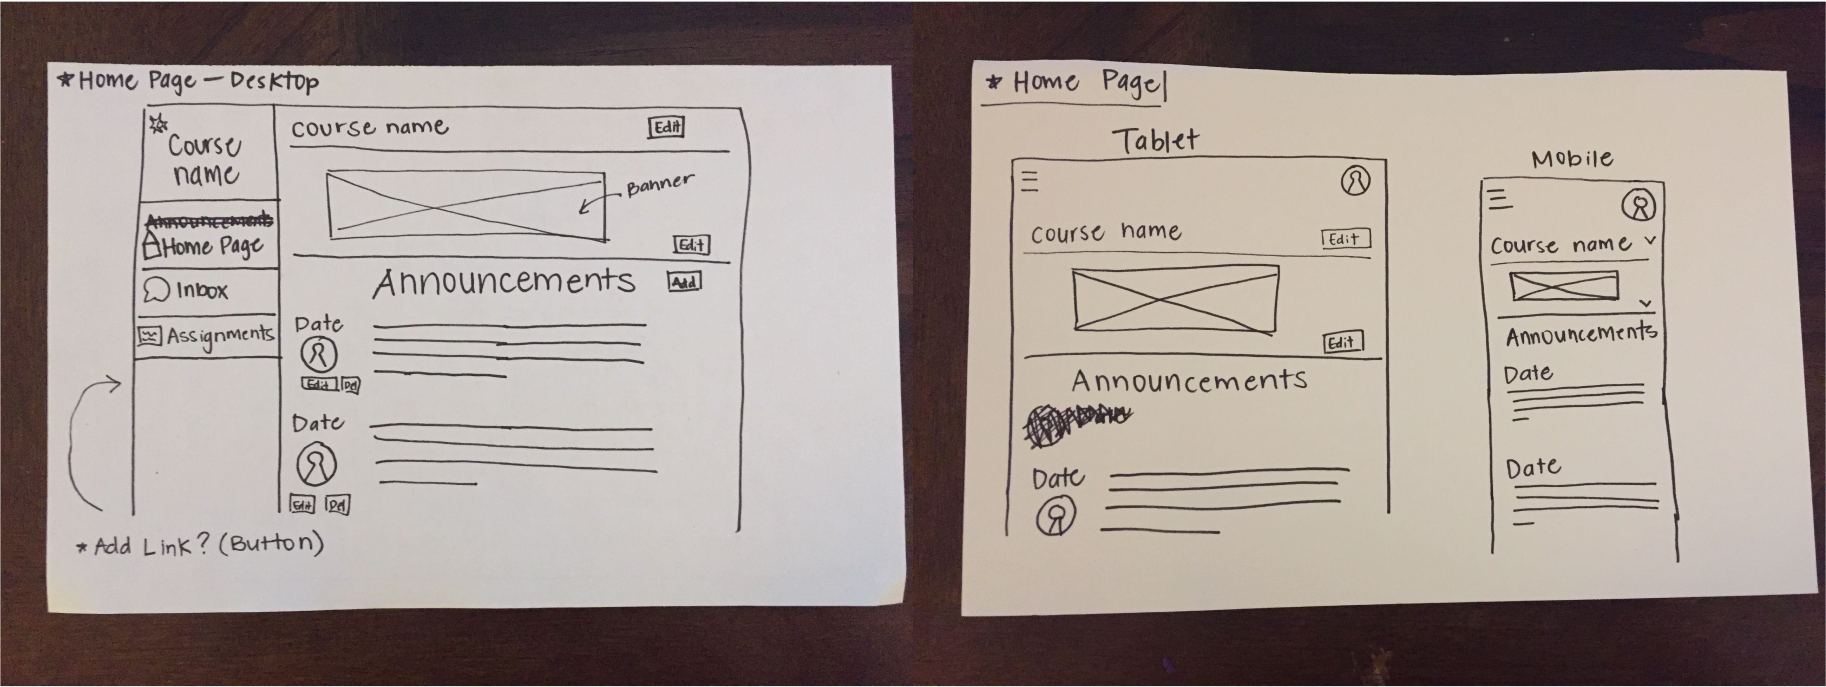 * Home Page — Desktop
Course
name
Announcements
Home Page
Inbox
Assignments
course name
Edit
Banner
Edit
Announcements
Add
Date
Edit Del
Date
Edit Del
* Add Link? (Button)
* Home Page
Tablet
course name
Edit
Edit
Announcements
Date
Mobile
course name
Announcements
Date
Date